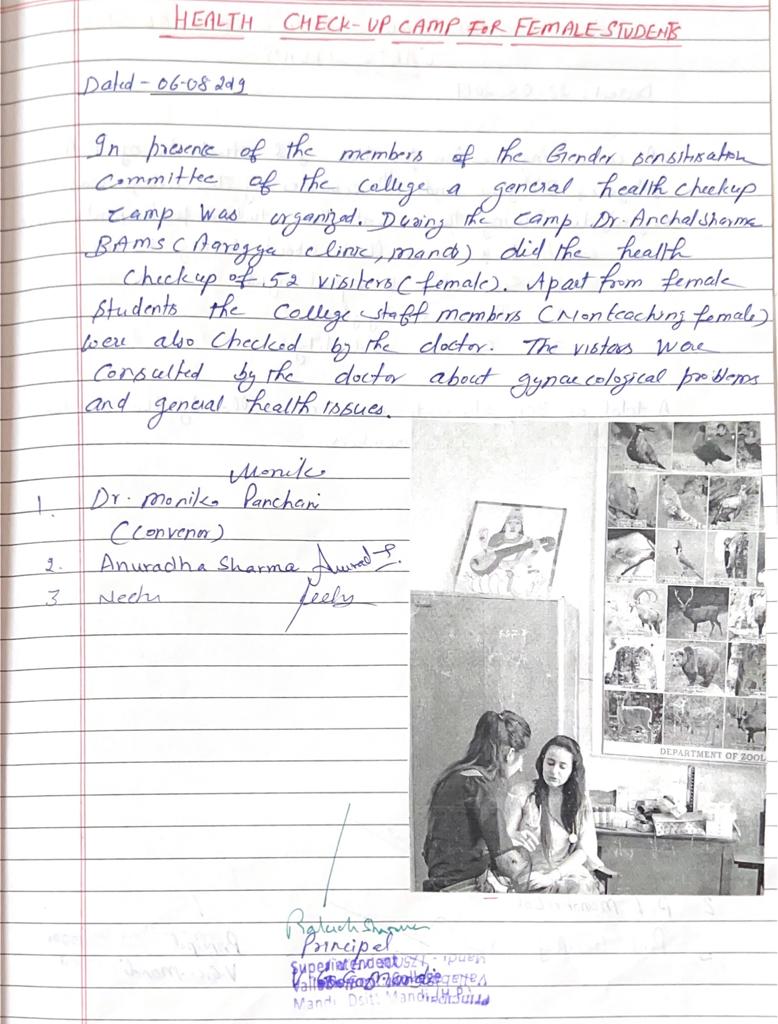 HEALTH CHECK-UP CAMP FOR FEMALE STUDENTS
Dated - 06-08 2019
In presence of the members of the Gender sensitisation
Committee of the college a general health checkup
camp was organized. During the camp Dr. Anchal Sharma
BAMS (Aarogya clinic, mandi) did the health
checkup of 52 visiters (female). Apart from female
students the college staff members (Nonteaching female)
were also checked by the doctor. The vistors were
consulted by the doctor about gynaecological problems
and general health issues.
Monika
1. Dr. Monika Panchani
(Convenor)
2. Anuradha Sharma
3 Neelu
DEPARTMENT OF ZOOL
Principal
Superintendent
College
Mandi Dsitt Mandi (H.P.)